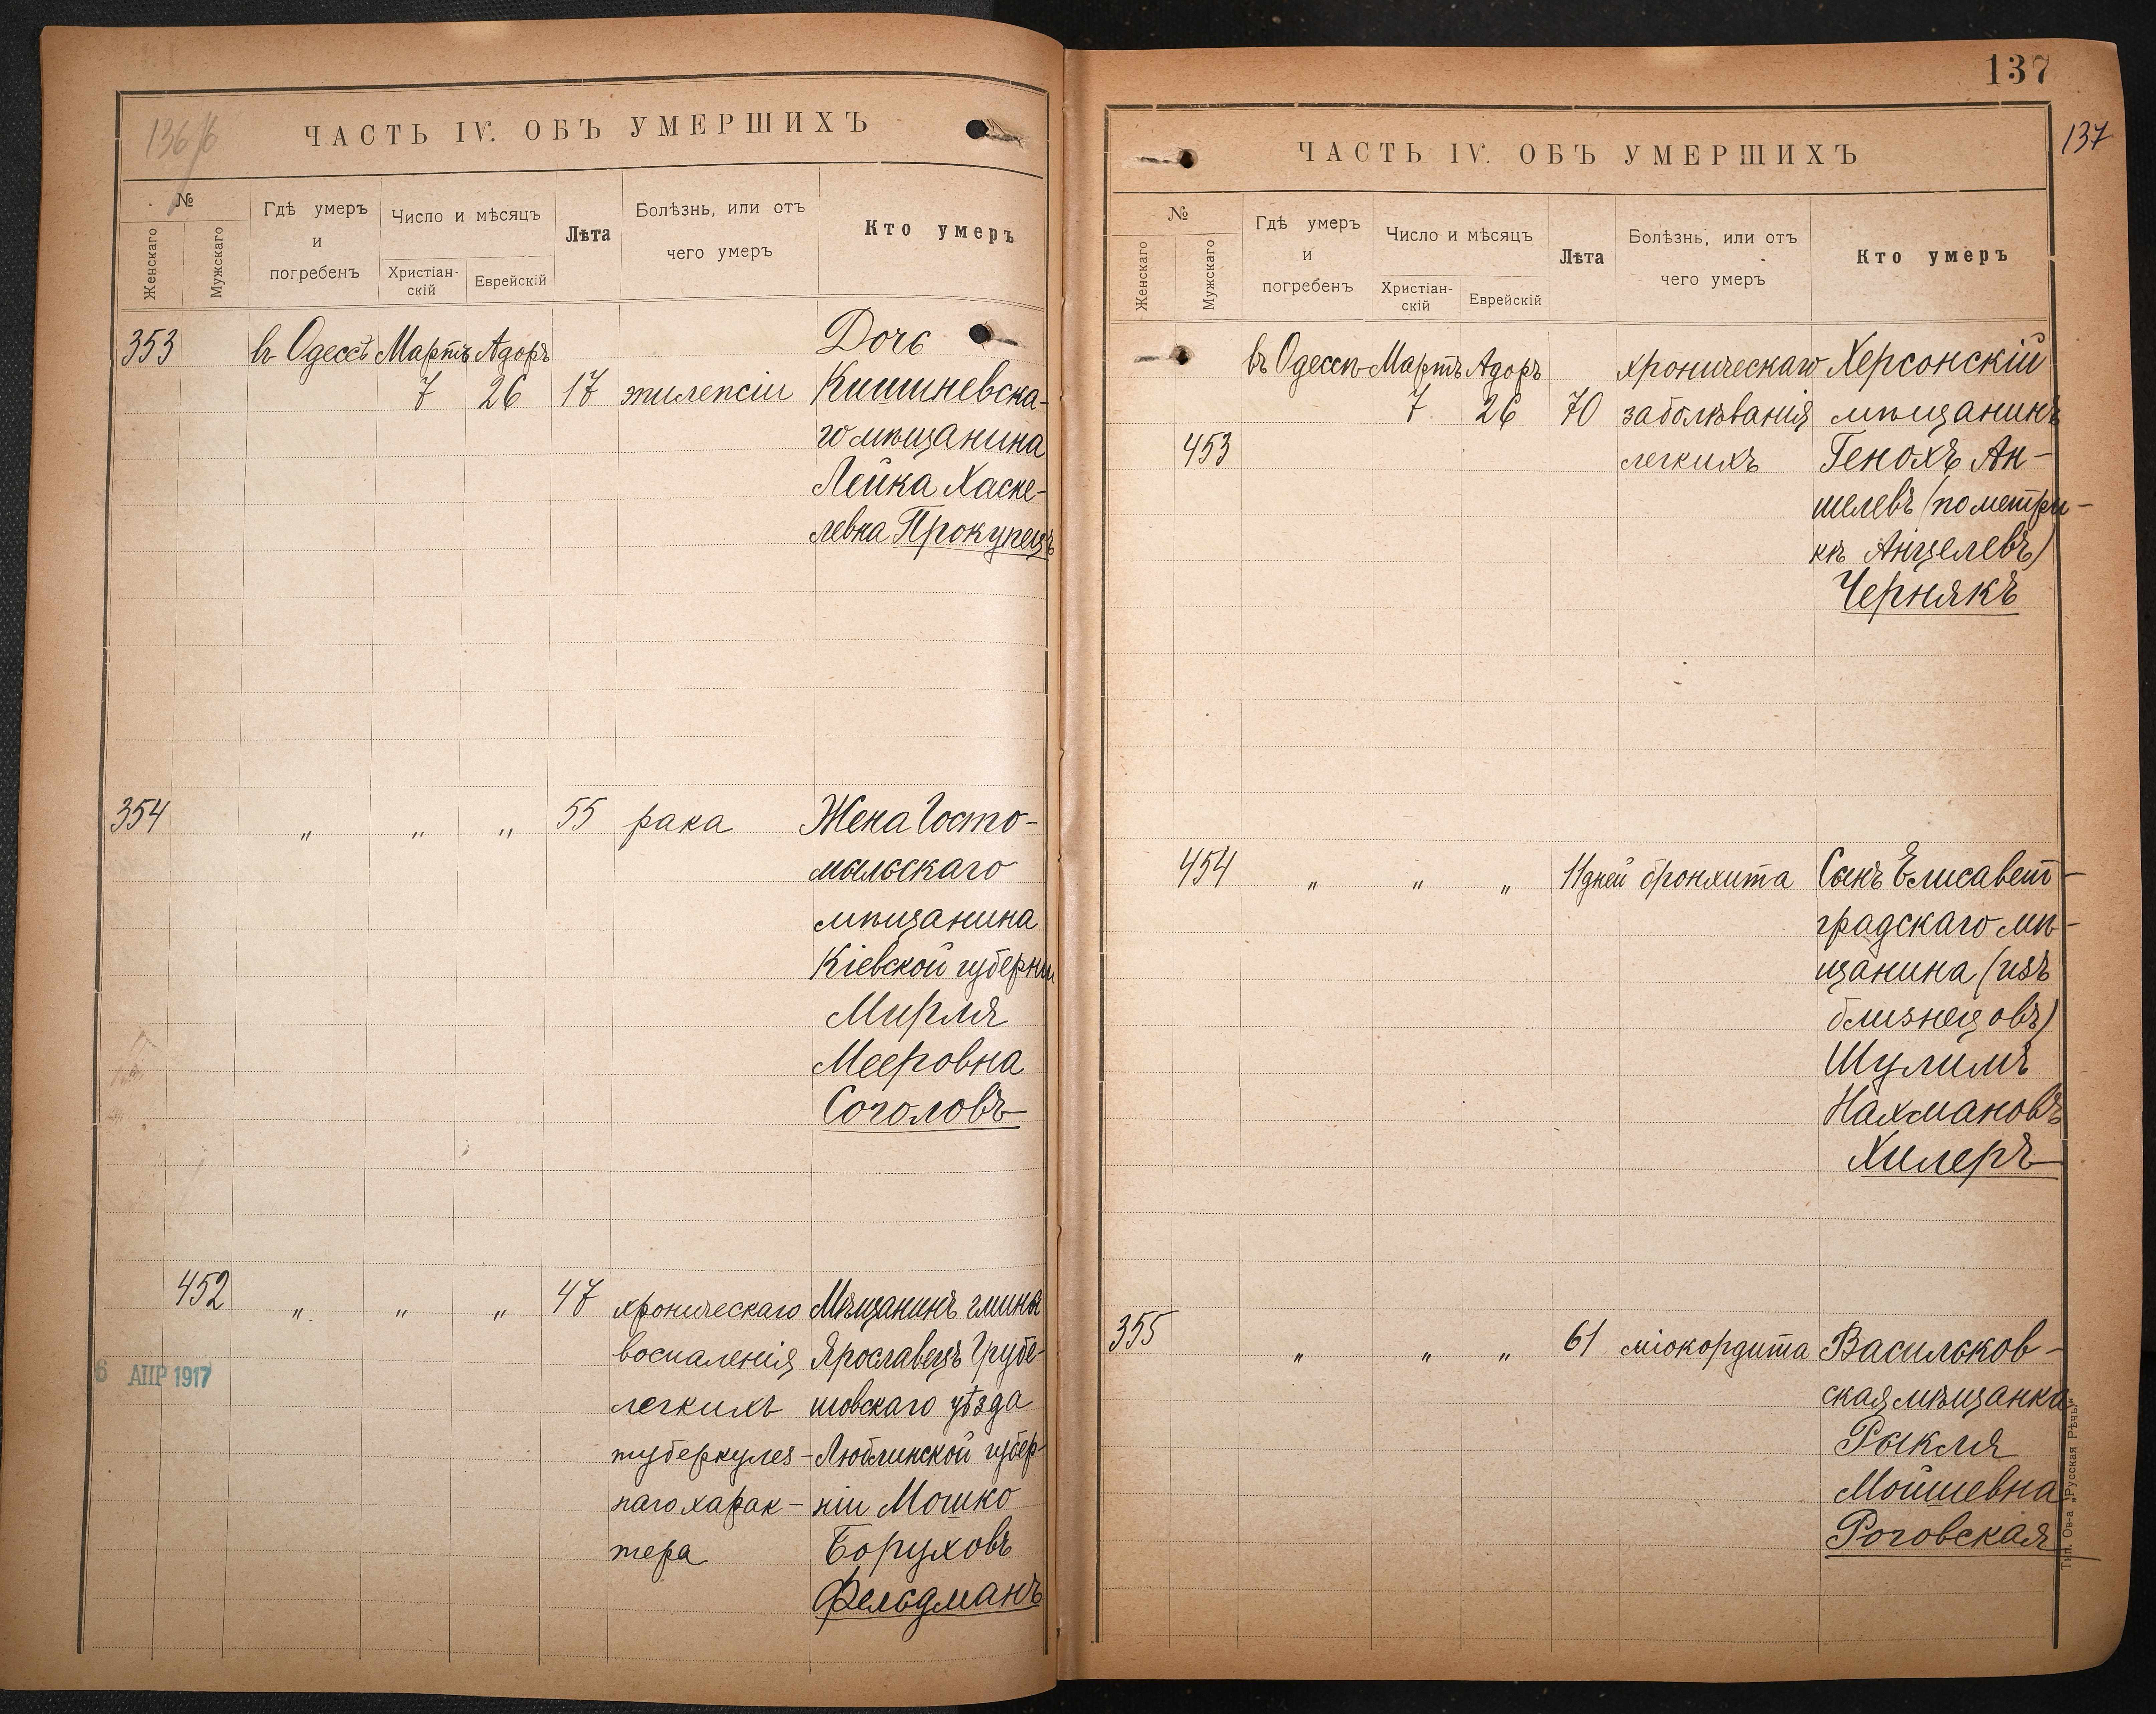 136/б
ЧАСТЬ IV. ОБЪ УМЕРШИХЪ
№
Женскаго
Мужскаго
Гдѣ умеръ
и
погребенъ
Число и мѣсяцъ
Христіан-
скій
Еврейскій
Лѣта
Болѣзнь, или отъ
чего умеръ
Кто умеръ
353 въ Одессѣ Мартъ Адоръ Дочь
7 26 17 эпилепсіи Кишиневска-
го мѣщанина
Лейка Хаске-
левна Прокупецъ
354 " " " 55 рака Жена Госто-
мыльскаго
мѣщанина
Кіевской губерніи
Мирля
Мееровна
Соголовъ
452 " " " 47 хроническаго Мѣщанинъ гмины
воспаленія Ярославецъ Грубе-
легкихъ шовскаго уѣзда
туберкулез- Люблинской губер-
наго харак- ніи Мошко
тера Боруховъ
Фельдманъ
6 АПР 1917
137
137
ЧАСТЬ IV. ОБЪ УМЕРШИХЪ
№
Женскаго
Мужскаго
Гдѣ умеръ
и
погребенъ
Число и мѣсяцъ
Христіан-
скій
Еврейскій
Лѣта
Болѣзнь, или отъ
чего умеръ
Кто умеръ
въ Одессѣ Мартъ Адоръ хроническаго Херсонскій
7 26 70 заболѣванія мѣщанинъ
453 легкихъ Генохъ Ан-
шелевъ (по метри-
кѣ Анцелевъ)
Чернякъ
454 " " " 11 дней бронхита Сынъ Елисавет-
градскаго мѣ-
щанина (изъ
близнецовъ)
Шулимъ
Нахмановъ
Хилеръ
355 " " " 61 міокордита Васильков-
ская мѣщанка
Рыкля
Мойшевна
Роговская
Тип. Ов-а „Русская Рѣчь“